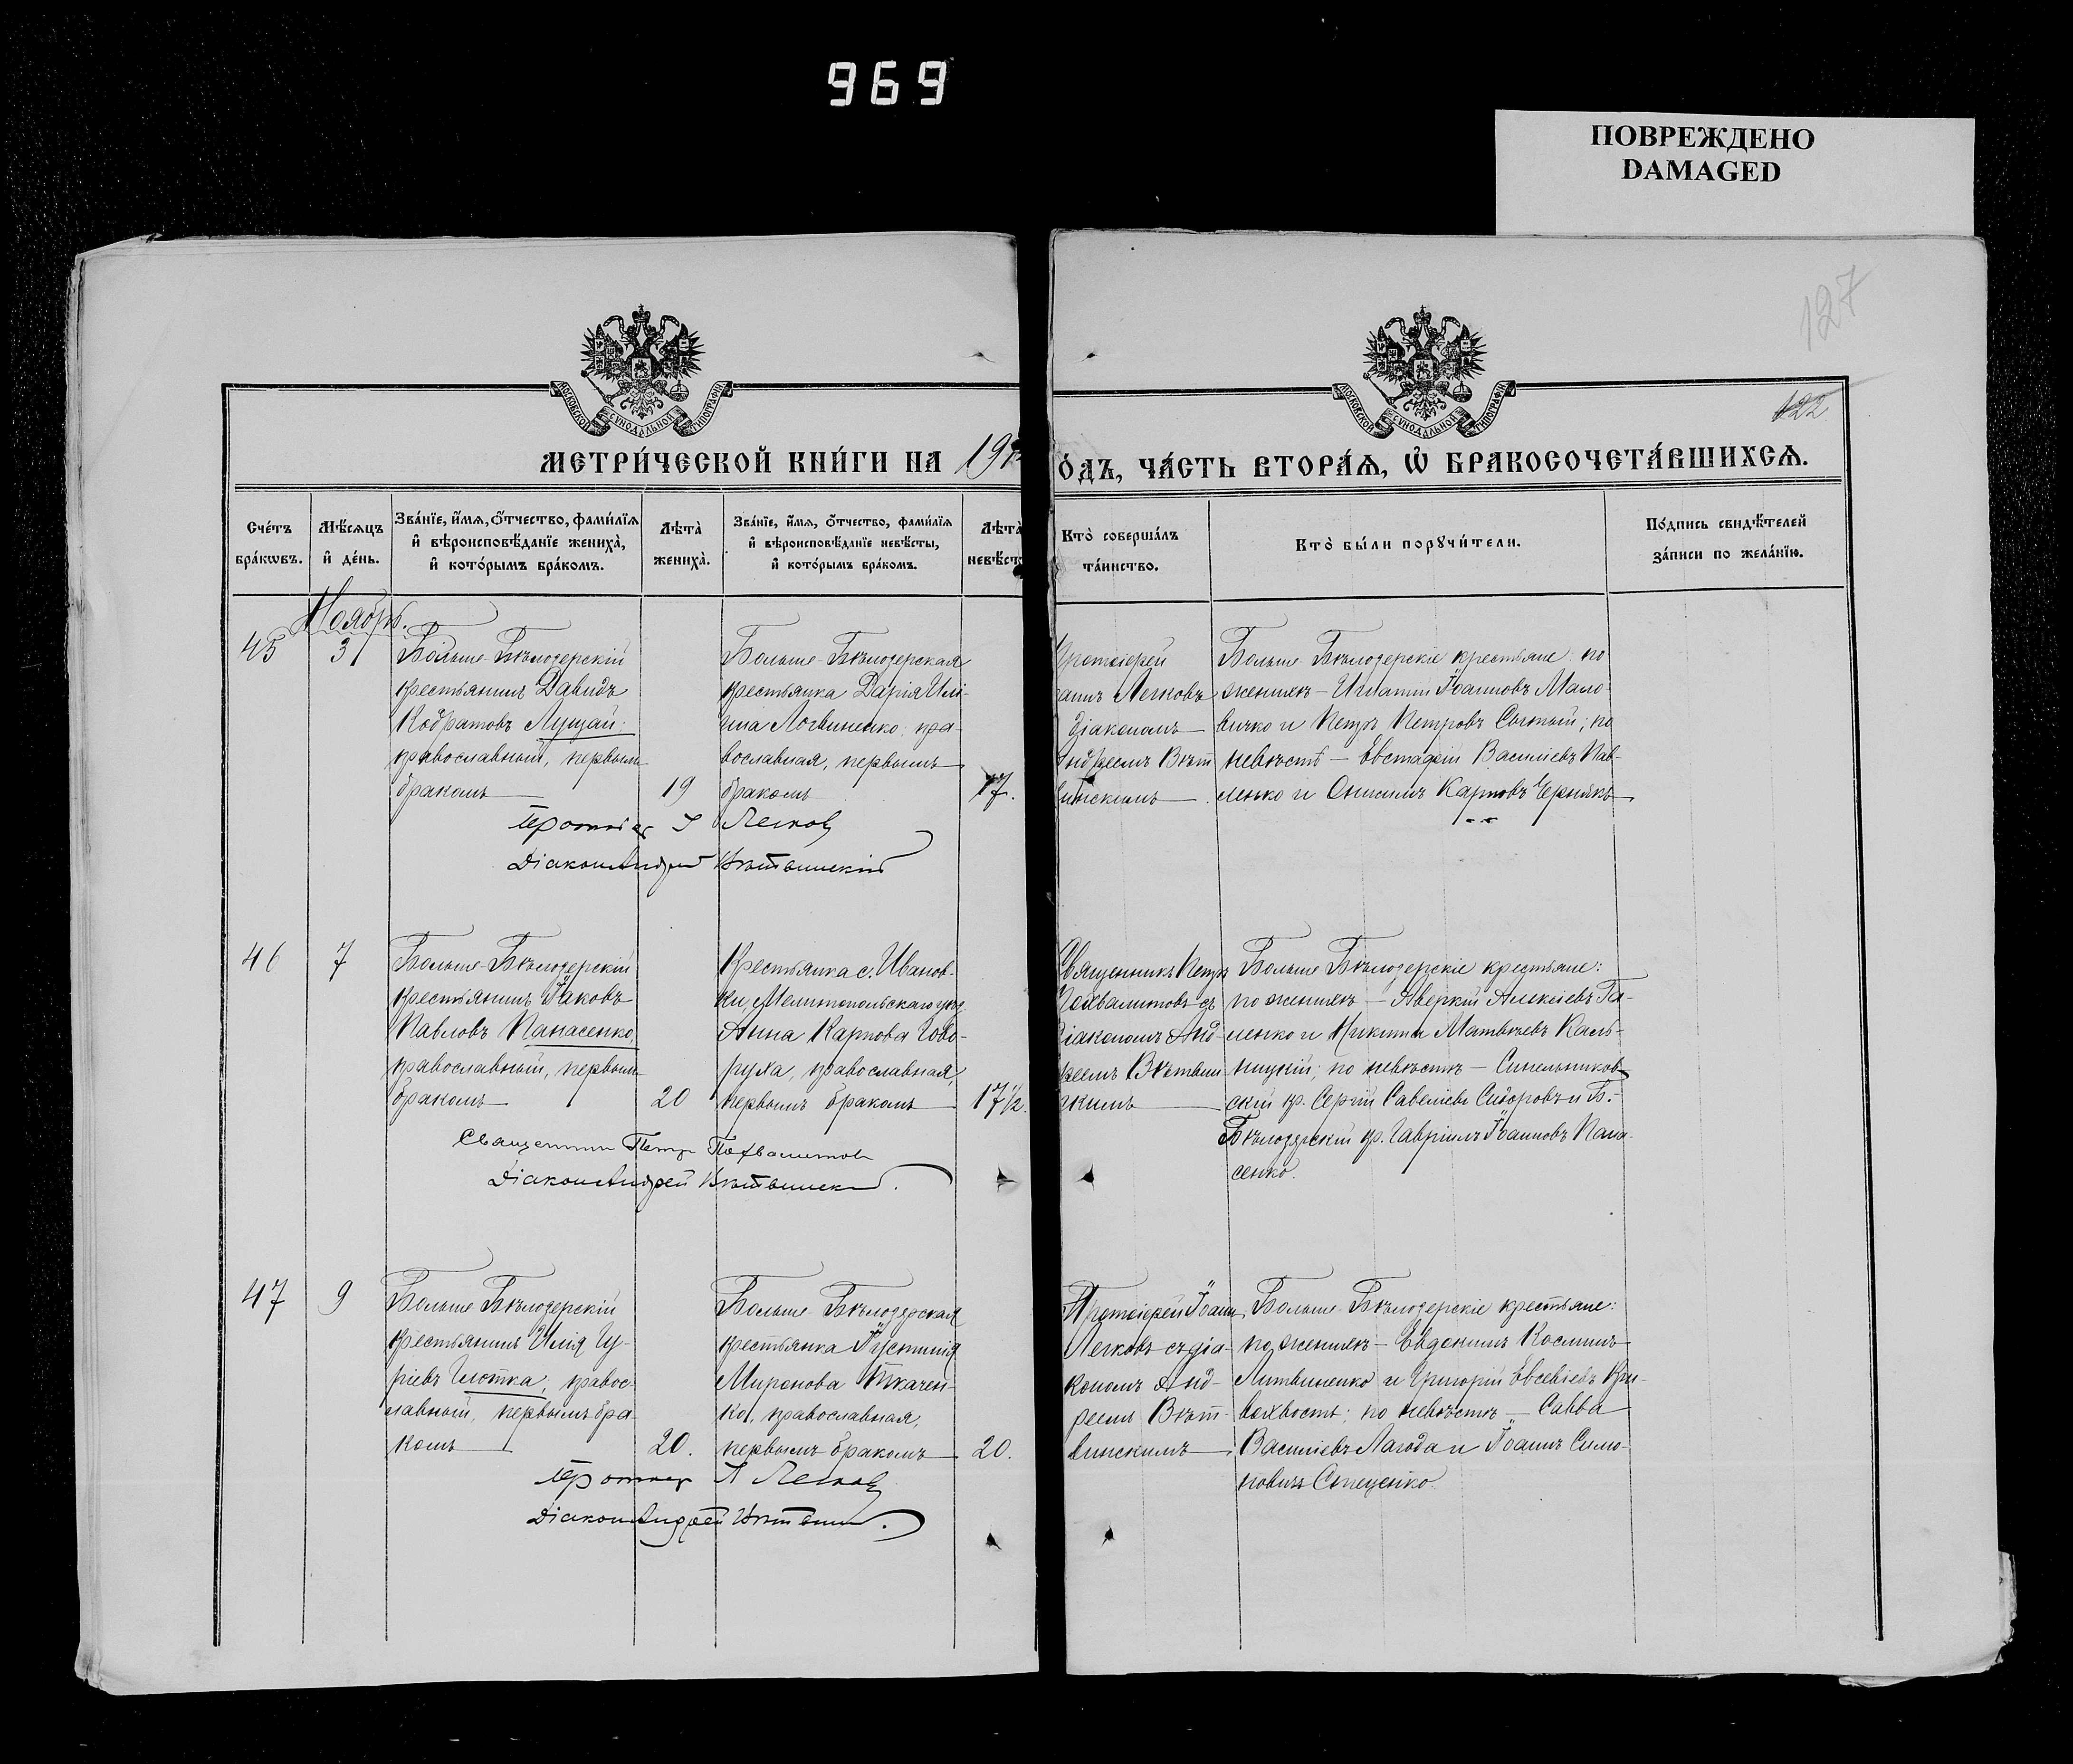 969
ПОВРЕЖДЕНО
DAMAGED
127
122
МОСКОВСКОЙ СѴНОДАЛЬНОЙ ТИПОГРАФІИ
МОСКОВСКОЙ СѴНОДАЛЬНОЙ ТИПОГРАФІИ
МЕТРИ́ЧЕСКОЙ КНИ́ГИ НА 191
О́ДЪ, ЧА́СТЬ ВТОРА́Ѧ, Ѽ БРАКОСОЧЕТА́ВШИХСѦ.
Сче́тъ бра́кѡвъ.
Мѣ́сяцъ и҆ де́нь.
Зва́нїе, и҆́мѧ, ѻ҆́тчество, фами́лїѧ и҆ вѣроисповѣ́данїе жениха̀, и҆ кото́рымъ бра́комъ.
Лѣта̀ жениха̀.
Зва́нїе, и҆́мѧ, ѻ҆́тчество, фами́лїѧ и҆ вѣроисповѣ́данїе невѣ́сты, и҆ кото́рымъ бра́комъ.
Лѣта̀ невѣ́ст
Кто̀ соверша́лъ та́инство.
Кто̀ бы́ли порꙋчи́тели.
По́дпись свидѣ́телей за́писи по жела́нїю.
Ноябрь.
45
3
Больше-Бѣлозерскій
крестьянинъ Давидъ
Кодратовъ Лущай;
православный, первымъ
бракомъ
19
Больше-Бѣлозерская
крестьянка Дарія Илі-
ина Логвиненко, пра-
вославная, первымъ
бракомъ
17.
Протоіерей
анъ Легковъ
діакономъ
андреемъ Вѣт
винскимъ
Больше-Бѣлозерскіе крестьяне: по
женихѣ – Игнатій Іоанновъ Мало-
вичко и Петръ Петровъ Сытный; по
невѣстѣ – Евстафій Василіевъ Пав-
ленко и Онисимъ Карповъ Чернякъ
Протоіер І Легковъ
Діаконъ Андрей Вѣтвинскій
46
7
Больше-Бѣлозерскій
крестьянинъ Іаковъ
Павловъ Панасенко,
православный, первымъ
бракомъ
20
Крестьянка с. Иванов-
ки, Мелитопольскаго уѣзд.
Анна Карпова Гово-
руха, православная,
первымъ бракомъ
17½.
Священникъ Петръ
Похвалитовъ съ
діакономъ Анд-
реемъ Вѣтвин
скимъ
Больше Бѣлозерскіе крестьяне:
по женихѣ – Аверкій Алексіевъ Га-
ленко и Никита Матвѣевъ Каль-
ницкій; по невѣстѣ – Синельников-
скій кр. Сергій Савеліевъ Сидоровъ и Б.-
Бѣлозерскій кр. Гавріилъ Іоанновъ Пана-
сенко.
Священник Петр Похвалитов
Діаконъ Андрей Вѣтвинск
47
9
Больше Бѣлозерскій
крестьянинъ Илія Гу-
ріевъ Глотка; правос-
лавный, первымъ бра-
комъ
20.
Больше-Бѣлозерская
крестьянка Іустинія
Миронова Ткачен-
ко, православная,
первымъ бракомъ
20.
Протоіерей Іоанн
Легковъ съ діа-
кономъ Анд-
реемъ Вѣт-
винскимъ
Больше-Бѣлозерскіе крестьяне:
по женихѣ – Евдокимъ Косминъ
Литвиненко и Григорій Евсевіевъ Кри-
вохвостъ; по невѣстѣ – Савва
Василіевъ Лагода и Іоаннъ Симо-
новичъ Стеценко.
Протоіер І Легковъ
Діаконъ Андрей Вѣтвин